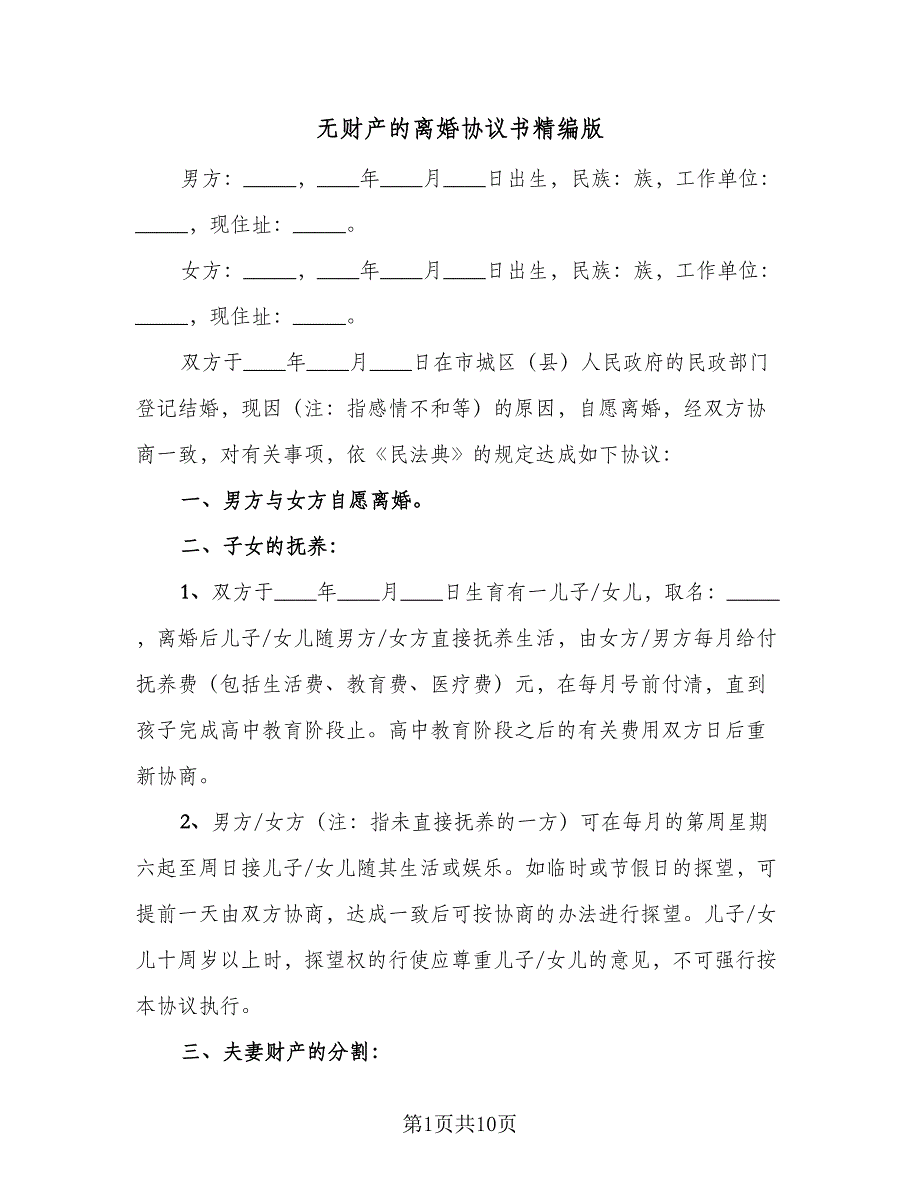 无财产的离婚协议书精编版
男方：_____，____年____月____日出生，民族：族，工作单位：
_____，现住址：_____。
女方：_____，____年____月____日出生，民族：族，工作单位：
_____，现住址：_____。
双方于____年____月____日在市城区（县）人民政府的民政部门
登记结婚，现因（注：指感情不和等）的原因，自愿离婚，经双方协
商一致，对有关事项，依《民法典》的规定达成如下协议：
一、男方与女方自愿离婚。
二、子女的抚养：
1、双方于____年____月____日生育有一儿子/女儿，取名：_____
，离婚后儿子/女儿随男方/女方直接抚养生活，由女方/男方每月给付
抚养费（包括生活费、教育费、医疗费）元，在每月号前付清，直到
孩子完成高中教育阶段止。高中教育阶段之后的有关费用双方日后重
新协商。
2、男方/女方（注：指未直接抚养的一方）可在每月的第周星期
六起至周日接儿子/女儿随其生活或娱乐。如临时或节假日的探望，可
提前一天由双方协商，达成一致后可按协商的办法进行探望。儿子/女
儿十周岁以上时，探望权的行使应尊重儿子/女儿的意见，不可强行按
本协议执行。
三、夫妻财产的分割：
第1页共10页